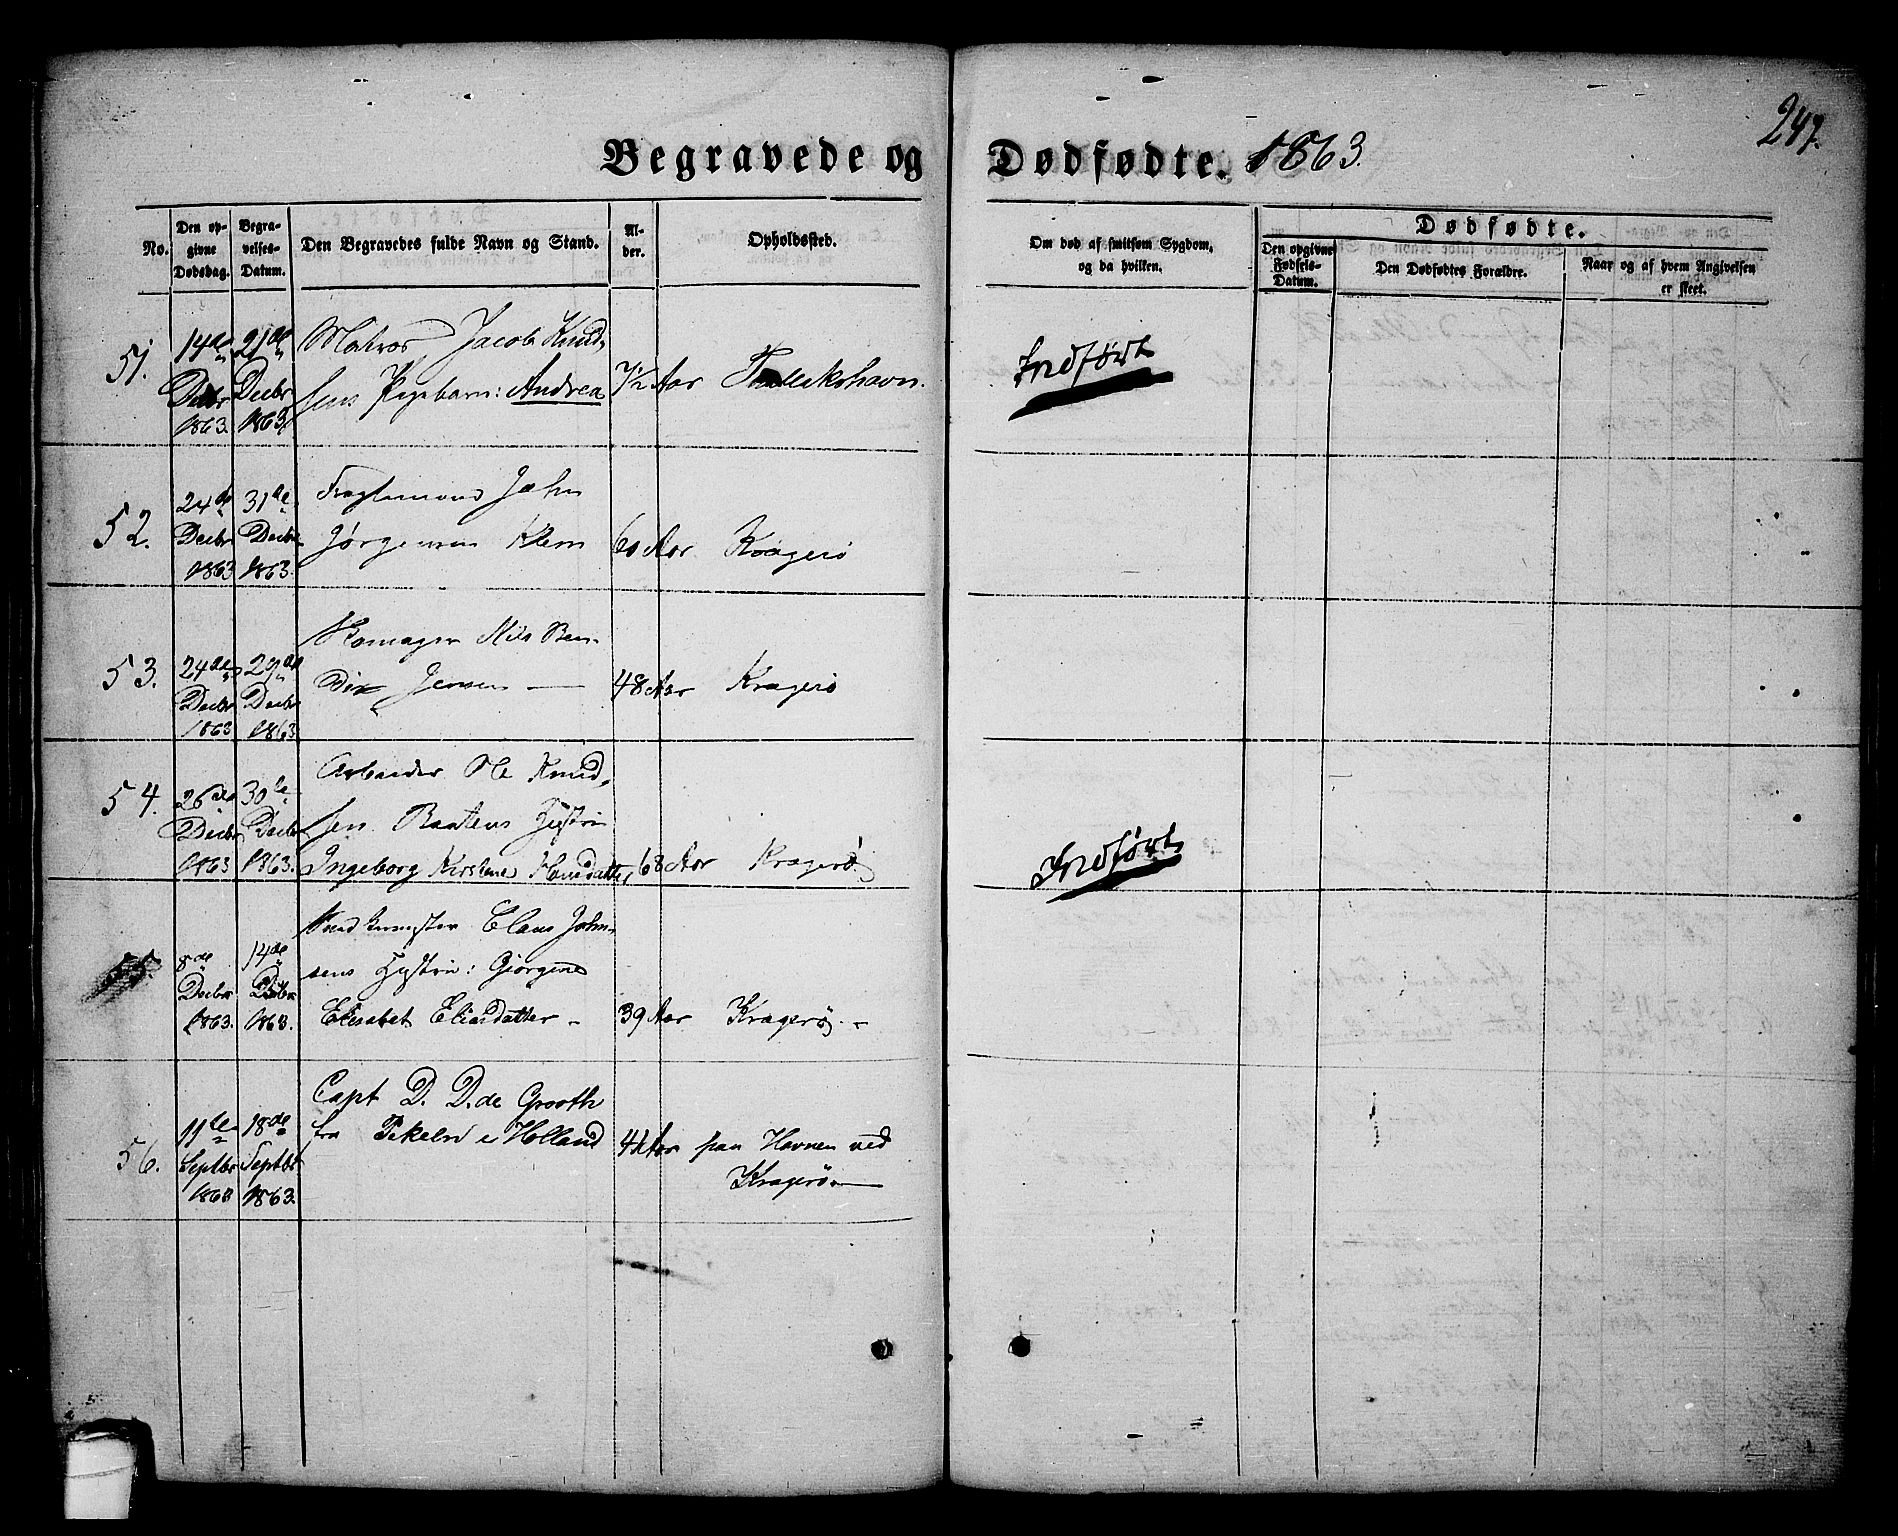 247.
Begravede og Dødfødte. 1863.
No.
Den op-
givne
Dødsdag.
Begra-
velses-
Datum.
Den Begravedes fulde Navn og Stand.
Al-
der.
Opholdssted.
Om død af smitsom Sygdom,
og da hvilken.
Dødfødte.
Den opgivne
Fødsels-
Datum.
Den Dødfødtes Forældre.
Naar og af hvem Angivelsen
er skeet.
51.
14de
Decbr
1863.
21de
Decbr
1863.
Matros Jacob Knud-
sens Pigebarn: Andrea
1/2 Aar
Indført
52.
24de
Decbr
1863
31de
Decbr
1863.
Jørgensen Klem
60 Aar
Kragerö
53.
24de
Decbr
1863
29de
Decbr
1863.
Skomager Nils Ben-
dix Jensen
48 Aar
Kragerö
54.
26de
Decbr
1863
30te
Decbr
1863.
Arbeider Ole Knud-
sen Hystru
Ingeborg Kirstine Hansdatter
68 Aar
Kragerø
Indført
55.
8de
Decbr
1863.
14de
Decbr
1863.
Claus John-
sens Hystru: Gjörgine
Elisabet Eliasdatter -
39 Aar
Kragerø. -
56.
11te
Septbr
1863
18de
Septbr
1863.
Capt D. D. de Grooth
fra Pekela i Holland
Aar
paa Havnen ved
Kragerø